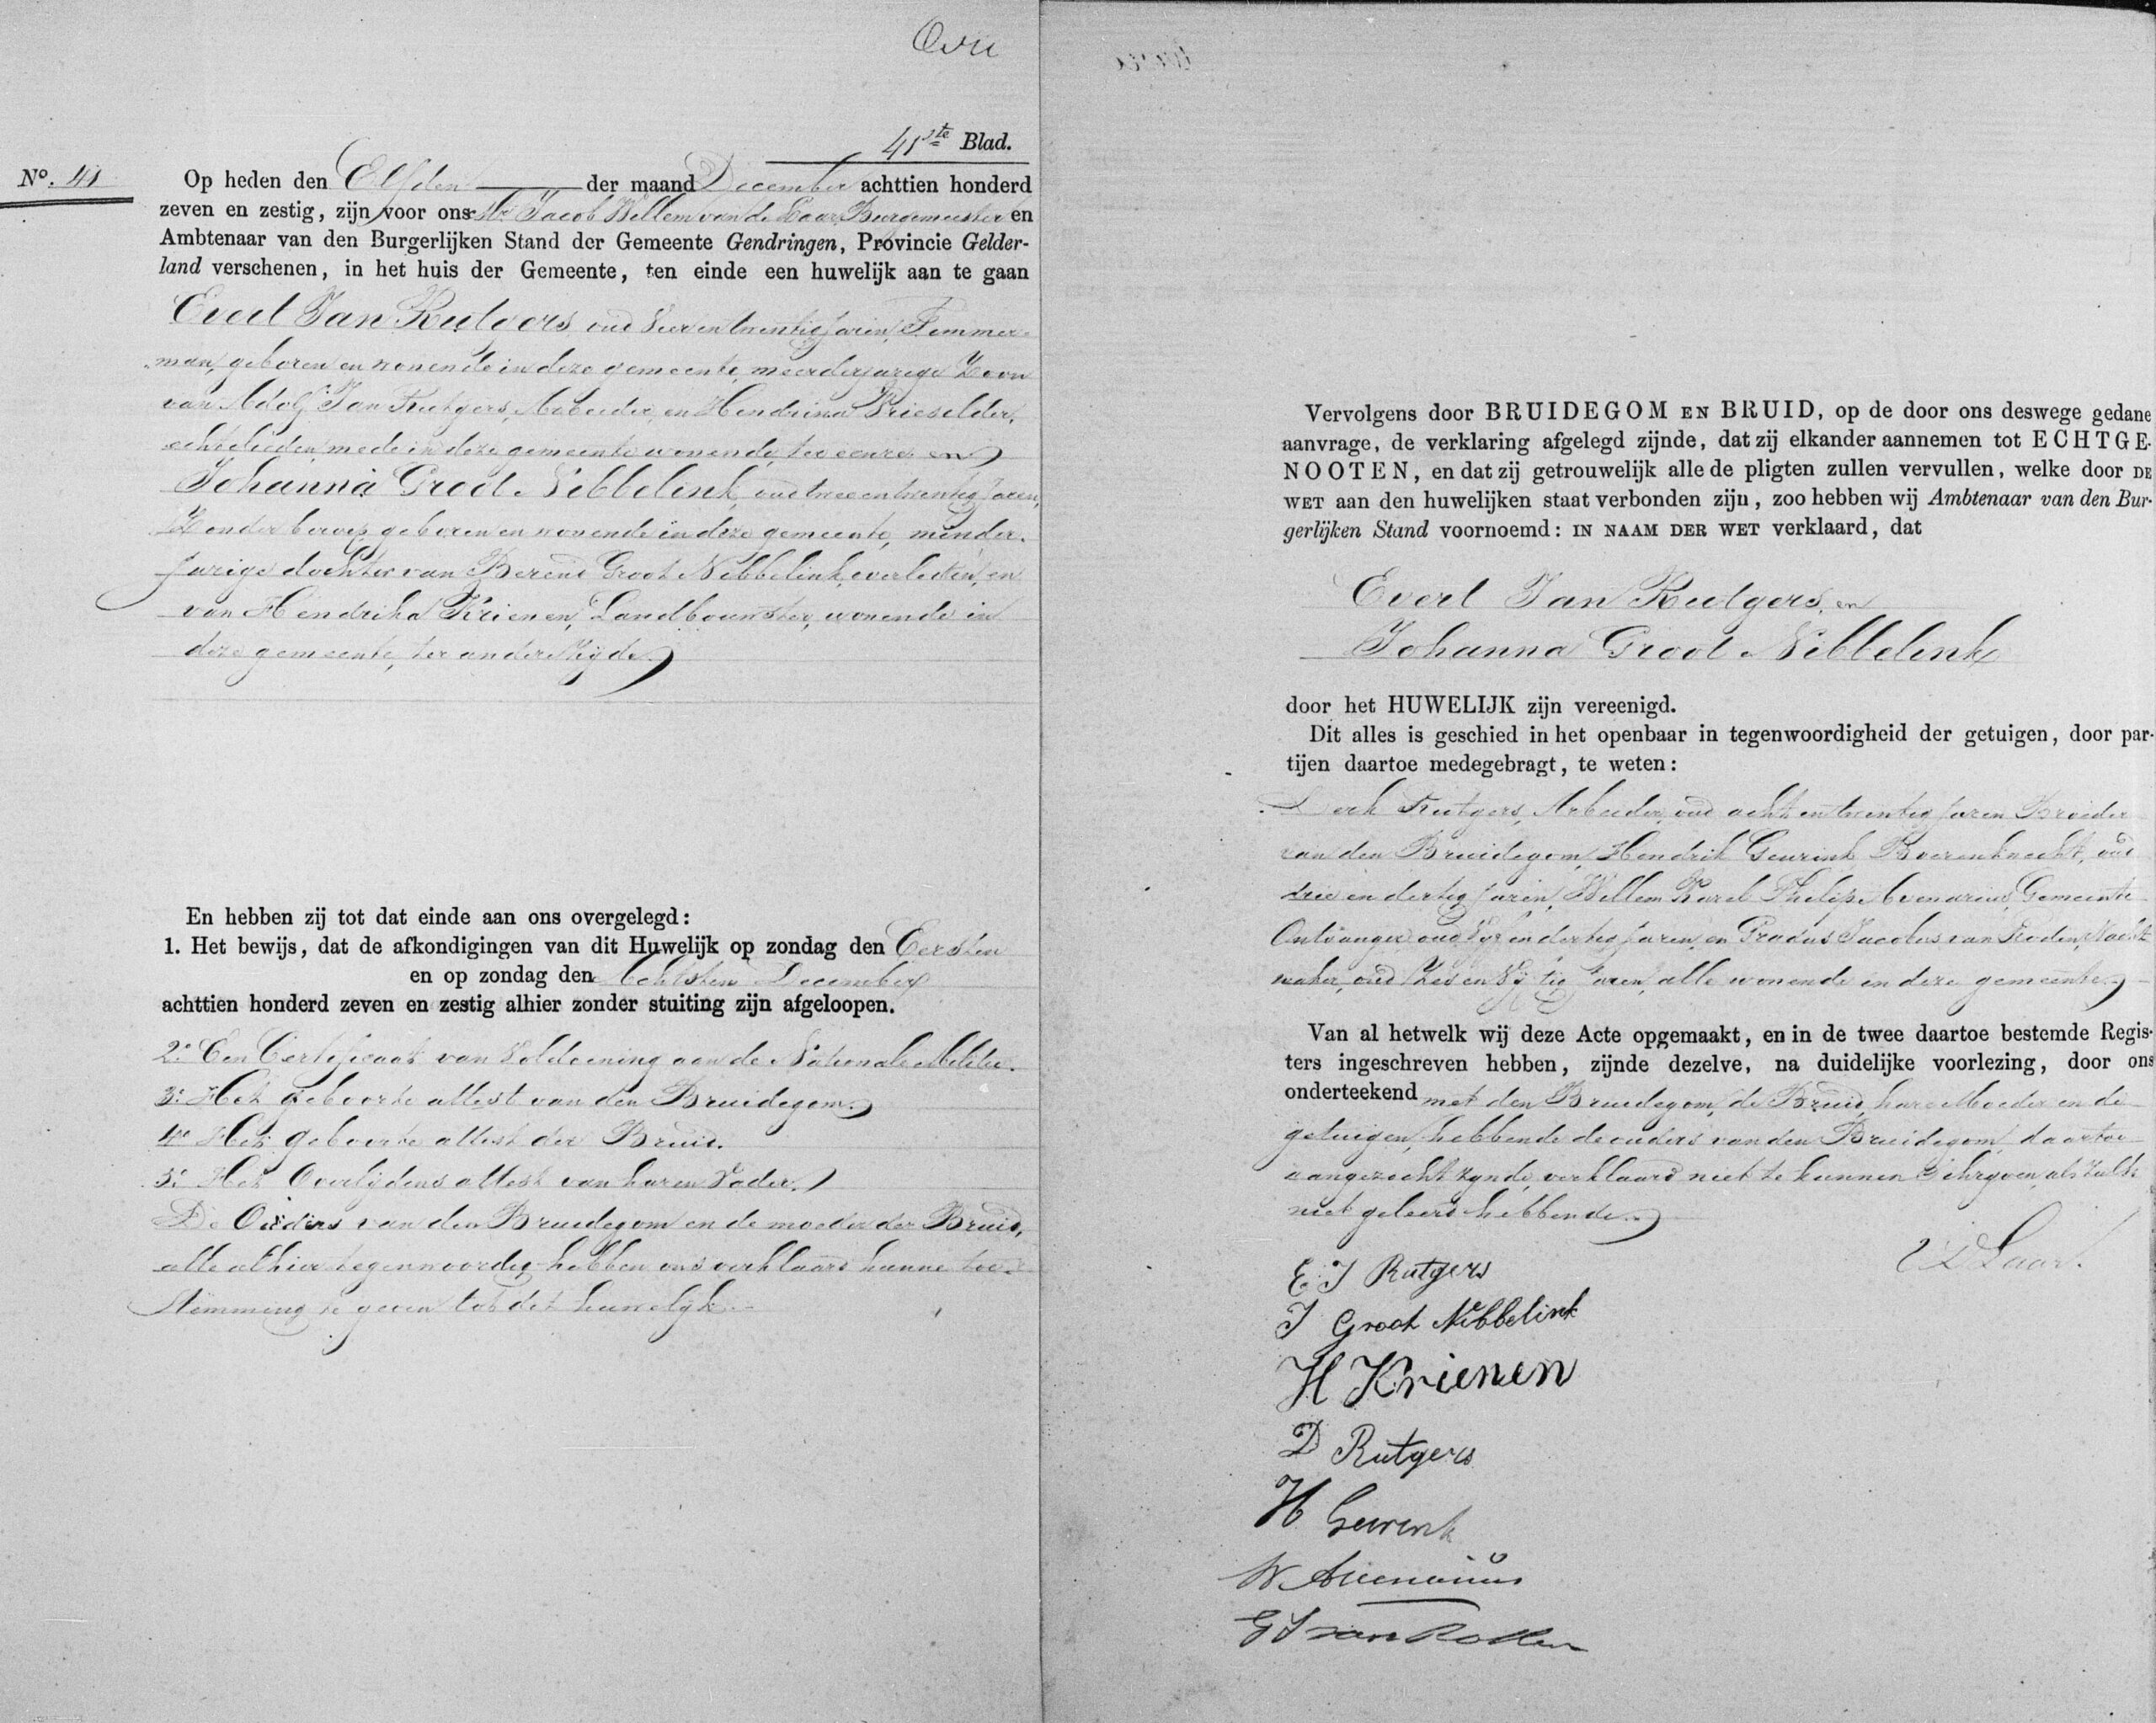 41ste Blad.
No. 41
Op heden den Elfden der maand December achttien honderd
zeven en zestig, zijn voor ons Mr Jacob Willem van de Laar, Burgemeester en
Ambtenaar van den Burgerlijken Stand der Gemeente Gendringen, Provincie Gelder-
land verschenen, in het huis der Gemeente, ten einde een huwelijk aan te gaan
Evert Jan Rutgers oud Vier en twintig Jaren, Timmer-
man, geboren en wonende in deze gemeente, meerderjarige Zoon
van Adolf Jan Rutgers, Arbeider, en Hendrina Prieselder,
echtelieden, mede in deze gemeente wonende, ter eenre en
Johanna Groot Nibbelink, oud twee en twintig Jaren,
Zonder beroep, geboren en wonende in deze gemeente, minder-
jarige dochter van Berend Groot Nibbelink, overleden, en
van Hendrika Krienen, Landbouwster, wonende in
deze gemeente, ter andere Zijde
En hebben zij tot dat einde aan ons overgelegd:
1. Het bewijs, dat de afkondigingen van dit Huwelijk op zondag den Eersten
en op zondag den Achtsten December
achttien honderd zeven en zestig alhier zonder stuiting zijn afgeloopen.
2e Een Certificaat van Voldoening aan de Nationale Militie.
3e Het geboorte attest van den Bruidegom.
4e Het geboorte attest der Bruid.
5e Het Overlijdens attest van haren Vader.
De Ouders van den Bruidegom en de moeder der Bruid,
alle alhier tegenwoordig hebben ons verklaard hunne toe-
stemming te geven tot dit huwelijk
Vervolgens door BRUIDEGOM EN BRUID, op de door ons deswege gedane
aanvrage, de verklaring afgelegd zijnde, dat zij elkander aannemen tot ECHTGE-
NOOTEN, en dat zij getrouwelijk alle de pligten zullen vervullen, welke door DE
WET aan den huwelijken staat verbonden zijn, zoo hebben wij Ambtenaar van den Bur-
gerlijken Stand voornoemd: IN NAAM DER WET verklaard, dat
Evert Jan Rutgers, en
Johanna Groot Nibbelink
door het HUWELIJK zijn vereenigd.
Dit alles is geschied in het openbaar in tegenwoordigheid der getuigen, door par-
tijen daartoe medegebragt, te weten:
Derk Rutgers, Arbeider, oud acht en twintig Jaren Broeder
van den Bruidegom, Hendrik Geurink, Boerenknecht, oud
drie en dertig Jaren, Willem Karel Philip Avenarius, Gemeente
Ontvanger oud Vijf en dertig Jaren, en Gradus Jacobus van Roden,
maker, oud Zes en Vijftig Jaren, alle wonende in deze gemeente
Van al hetwelk wij deze Acte opgemaakt, en in de twee daartoe bestemde Regis-
ters ingeschreven hebben, zijnde dezelve, na duidelijke voorlezing, door ons
onderteekend met den Bruidegom, de Bruid, hare Moeder en de
getuigen, hebbende de ouders van den Bruidegom, daartoe
aangezocht zijnde, verklaard niet te kunnen Schrijven, als zulks
niet geleerd hebbende
vd Laar
E J Rutgers
J Groot Nibbelink
H Krienen
D Rutgers
H Geurink
W Avenarius
G J van Roden